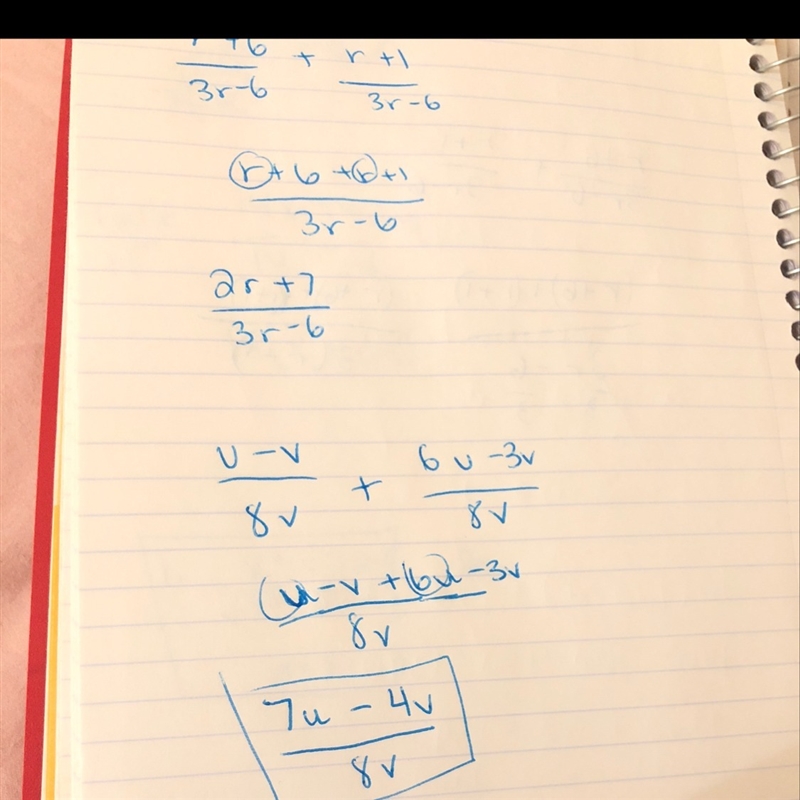 r+6/3r-6 + r+1/3r-6
r+6+r+1/3r-6
2r+7/3r-6
u-v/8v + 6u-3v/8v
(u-v+(6u)-3v/8v
7u-4v/8v